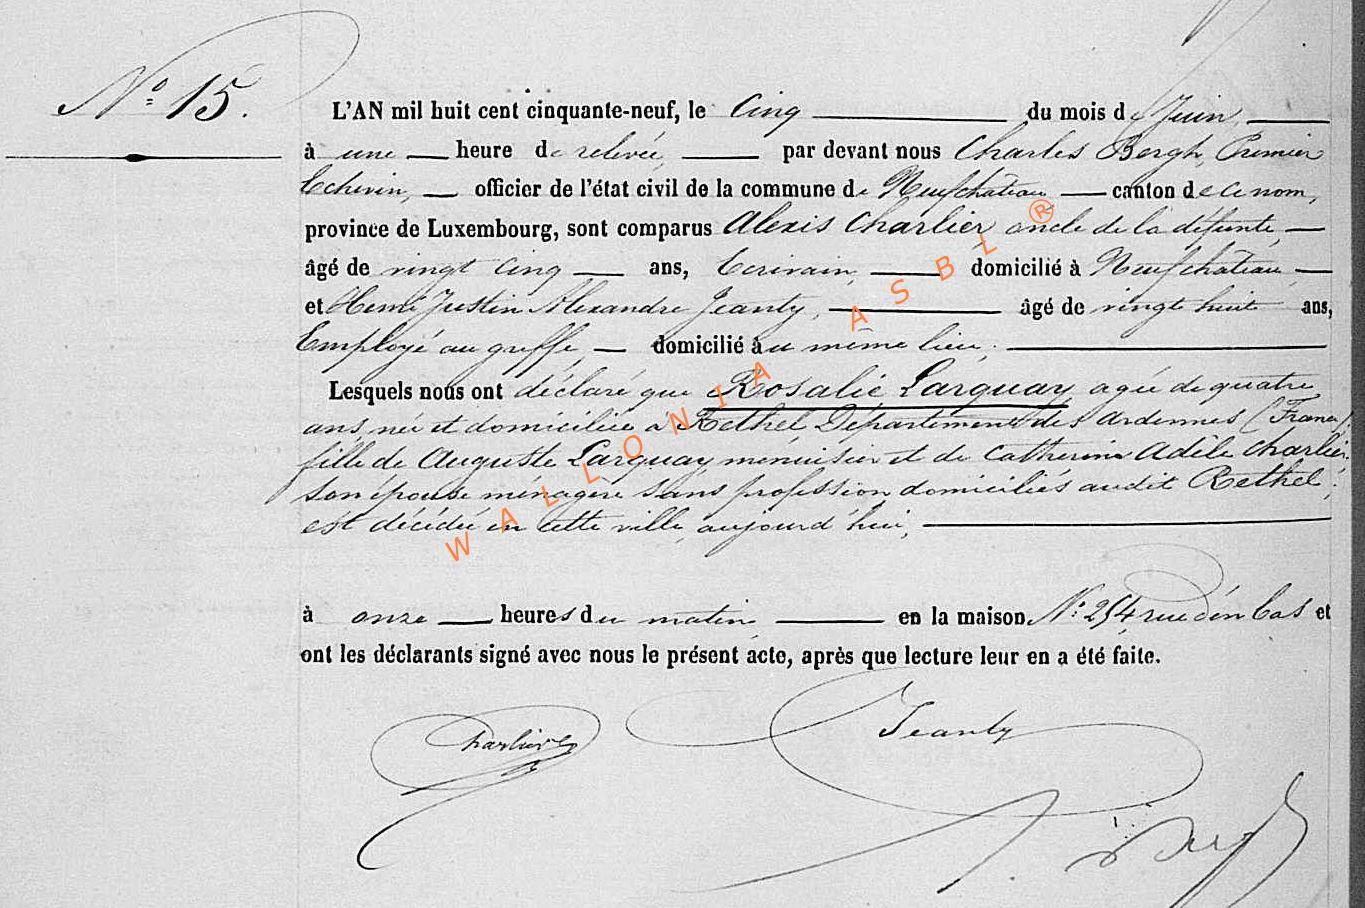 N° 15.
L'AN mil huit cent cinquante-neuf, le Cinq du mois de Juin,
à une heure de relevée, par devant nous Charles Bergh, Premier
Echevin, officier de l'état civil de la commune de Neufchateau canton de ce nom,
province de Luxembourg, sont comparus Alexis Charlier, oncle de la défunte,
âgé de vingt cinq ans, Ecrivain, domicilié à Neufchateau
et Henri Justin Alexandre Jeanty, âgé de vingt huit ans,
Employé au greffe, domicilié au même lieu;
Lesquels nous ont déclaré que Rosalie Larquay agée de quatre
ans, née et domiciliée à Rethel Département des Ardennes (France),
fille de Auguste Larquay menuisier et de Catherine Adèle Charlier
son épouse ménagère sans profession domiciliés audit Rethel;
est décédée en cette ville, aujourd'hui,
à onze heures du matin en la maison N° 254, rue d'en bas et
ont les déclarants signé avec nous le présent acte, après que lecture leur en a été faite.
Charlier
Jeanty
WALLONIA ASBL ®